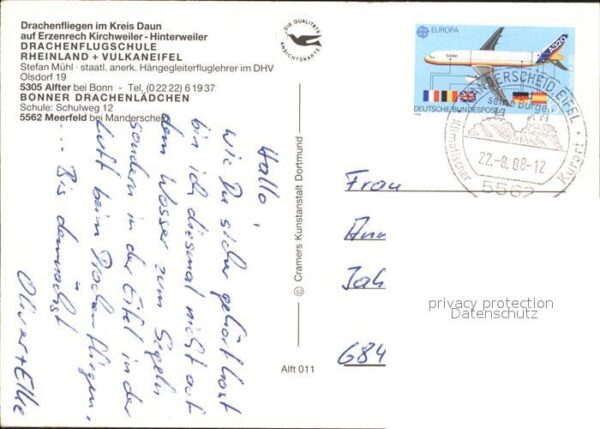 Drachenfliegen im Kreis Daun
auf Erzenrech Kirchweiler - Hinterweiler
DRACHENFLUGSCHULE
RHEINLAND + VULKANEIFEL
Stefan Mühl · staatl. anerk. Hängegleiterfluglehrer im DHV
Olsdorf 19
5305 Alfter bei Bonn - Tel. (0 22 22) 6 19 37
BONNER DRACHENLÄDCHEN
Schule: Schulweg 12
5562 Meerfeld bei Manderscheid
Hallo,
wie Du sicher gehört hast
bin ich diesmal nicht auf
dem Wasser zum Segeln
sondern in der Eifel in der
Luft beim Drachenfliegen,
... Bis demnächst
Oliver + Elke
DIE QUALITÄTS
ANSICHTSKARTE
© Cramers Kunstanstalt Dortmund
Alft 011
EUROPA
A320
DEUTSCHE BUNDESPOST
MANDERSCHEID, EIFEL
seine Burgen
22.-8.88-12
5562
Kurort
Frau
Ann
Jah
684
privacy protection
Datenschutz